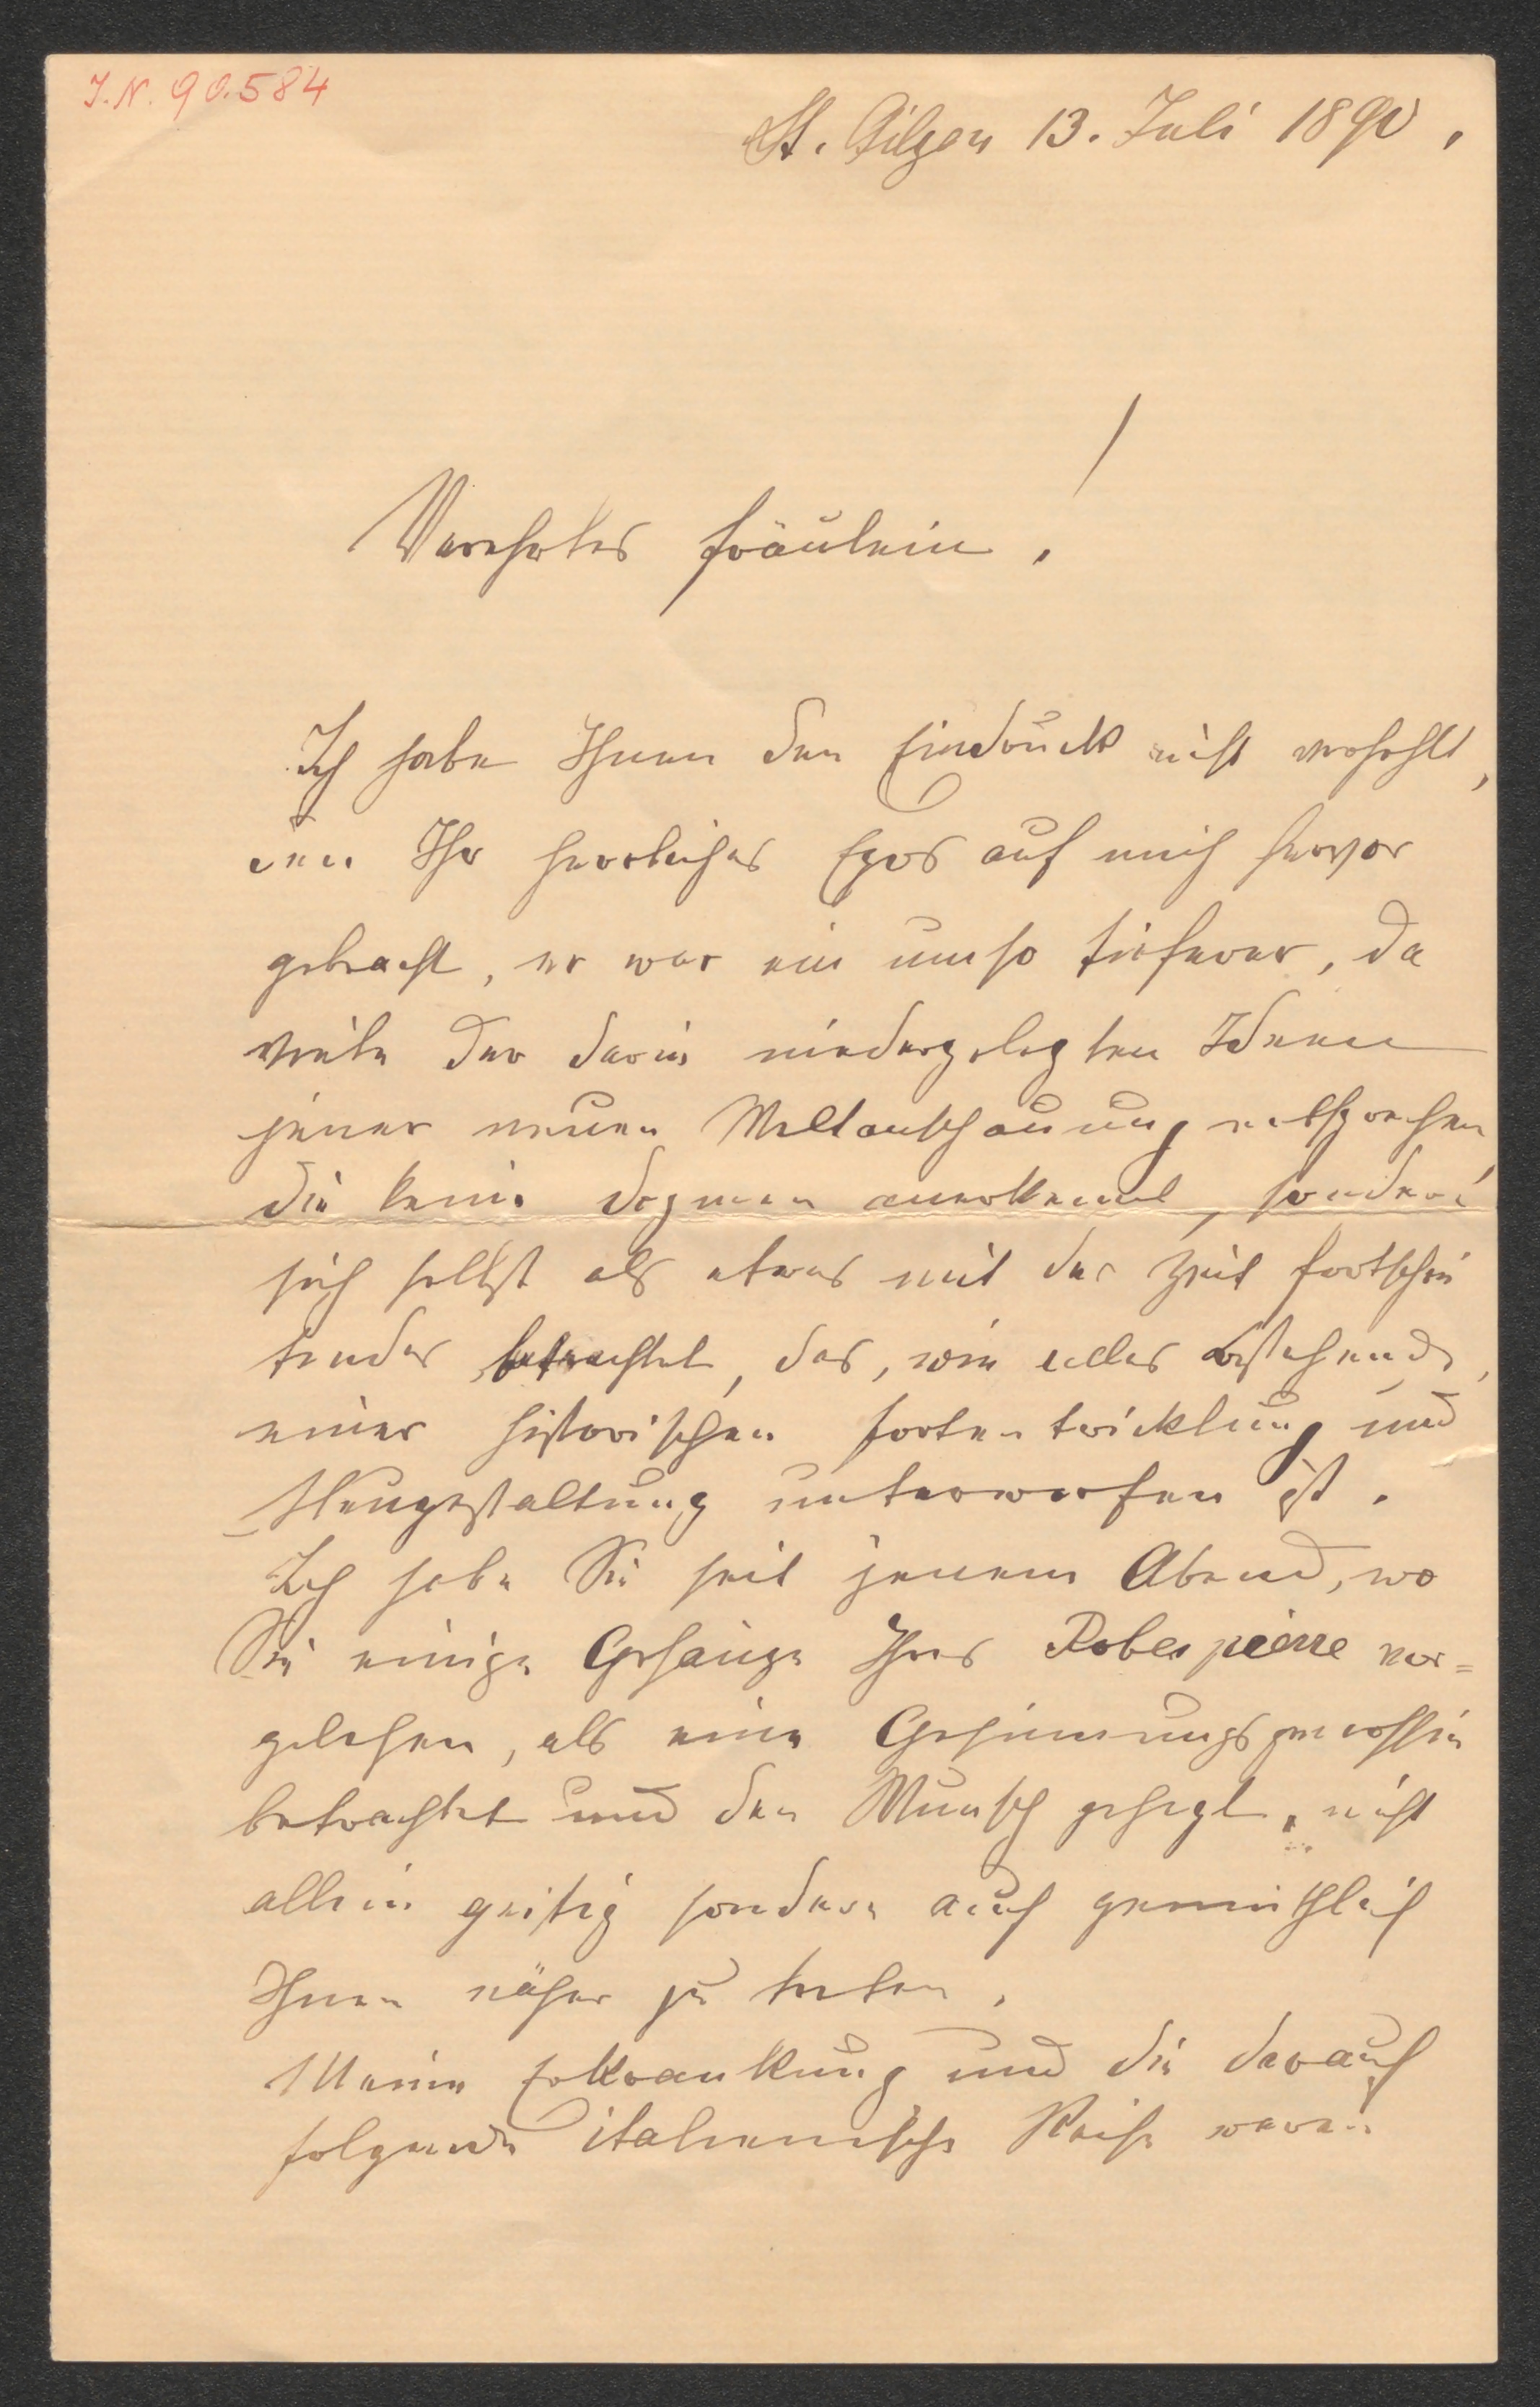 J.N. 90.584
St. Gilgen 13. Juli 1890.
Verehrtes Fräulein!
Ich habe Ihnen den Eindruck nicht verhehlt,
den Ihr herrliches Epos auf mich hervor
gebracht, er war ein umso tieferer, da
viele der darin niedergelegten Ideen
jener neuen Weltanschauung entsprechen,
die keine Dogmen anerkennt, sondern
sich selbst als etwas mit der Zeit fortschrei
tendes betrachtet, das, wie alles Bestehende,
einer historischen Fortentwicklung und
Neugestaltung unterworfen ist.
Ich habe Sie seit jenem Abend, wo
Sie einige Gesänge Ihres Robespierre vor=
gelesen, als eine Gesinnungsgenossin
betrachtet und den Wunsch gehegt, nicht
allein geistig sondern auch gemüthlich
Ihnen näher zu treten.
Meine Erkrankung und die darauf
folgende italienische Reise waren